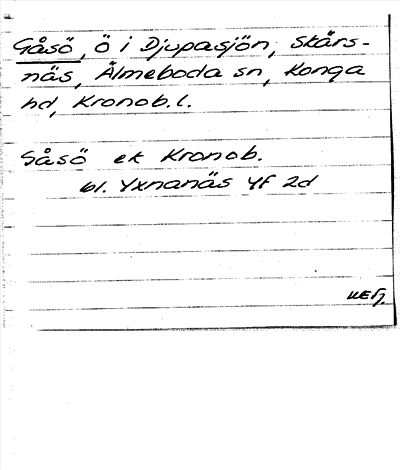 Gåsö, ö i Djupasjön, Skärs-
näs, Älmeboda sn, Konga
hd, Kronob.l.
Gåsö ek Kronob.
bl. Yxnanäs Yf 2d